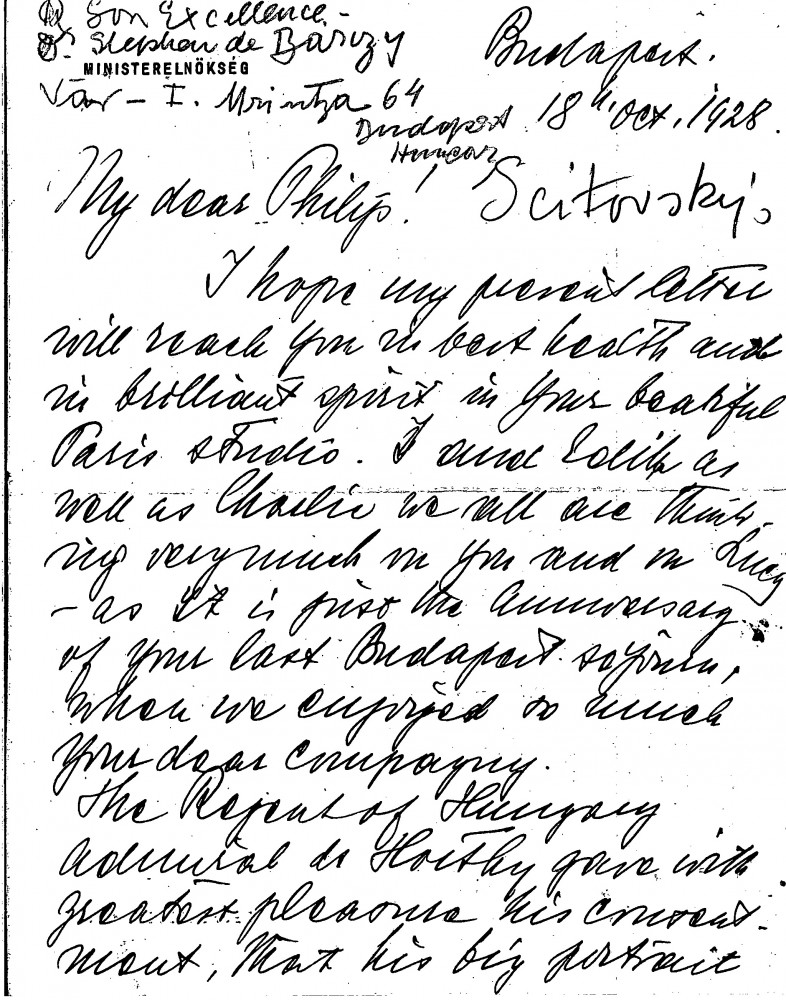 Son Excellence -
Dr. Stephan de Bárczy
MINISTERELNÖKSÉG
Vár - I. 64
Budapest
Hungary
Budapest.
18th, Oct, 1928.
Scitovsky's
My dear Philip!
I hope my present letter
will reach you in best health and
in brilliant spirit in your beatiful
Paris studio. I and Edith as
well as Charlie we all are think-
ing very much on you and on Lucy
- as it is just the anniversary
of your last Budapest sojourn,
when we enjoyed so much
your dear compagny.
The Regent of Hungary
Admiral de Horthy gave with
greatest pleasure his consent-
ment, that his big portrait